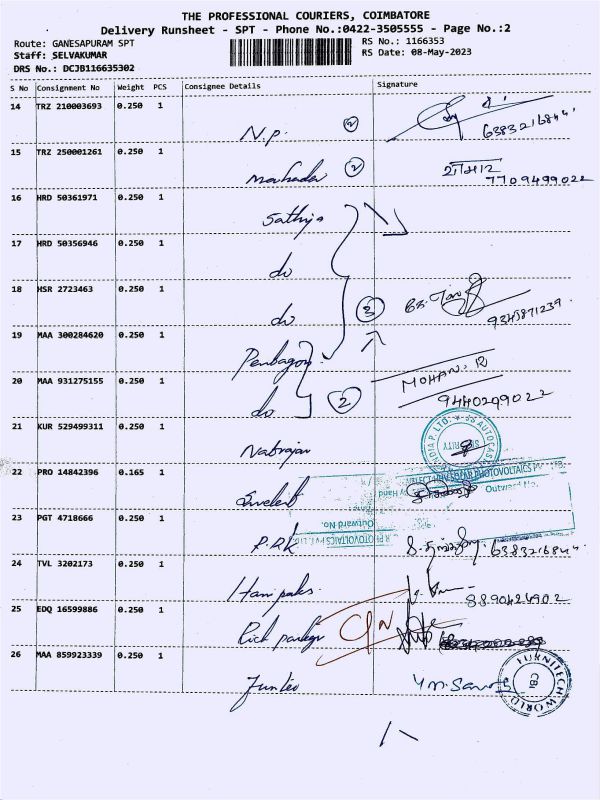 THE PROFESSIONAL COURIERS, COIMBATORE
Delivery Runsheet - SPT - Phone No.:0422-3505555 - Page No.:2
Route: GANESAPURAM SPT
RS No.: 1166353
Staff: SELVAKUMAR
RS Date: 08-May-2023
DRS No.: DCJB116635302
S No Consignment No Weight PCS Consignee Details Signature
14 TRZ 210003693 0.250 1
N.P. 2
15 TRZ 250001261 0.250 1
2 7709499022
16 HRD 50361971 0.250 1
Sathya
17 HRD 50356946 0.250 1
do
18 HSR 2723463 0.250 1
do 3 9345871239
19 MAA 300284620 0.250 1
Pentagon
20 MAA 931275155 0.250 1 MOHAN. R
do 2
21 KUR 529499311 0.250 1
Natrajan
22 PRO 14842396 0.165 1
23 PGT 4718666 0.250 1
Outward No.
P.R.K
24 TVL 3202173 0.250 1
8890424902
25 EDQ 16599886 0.250 1
26 MAA 859923339 0.250 1
FURNITECH WORLD
CBE